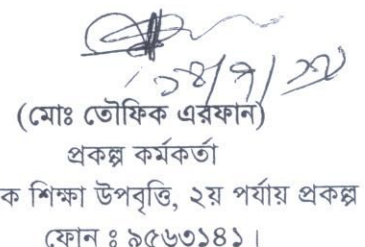 (মোঃ তৌফিক এরফান)
প্রকল্প কর্মকর্তা
ক শিক্ষা উপবৃত্তি, ২য় পর্যায় প্রকল্প
ফোন ঃ ৯৫৬৩১৪১।